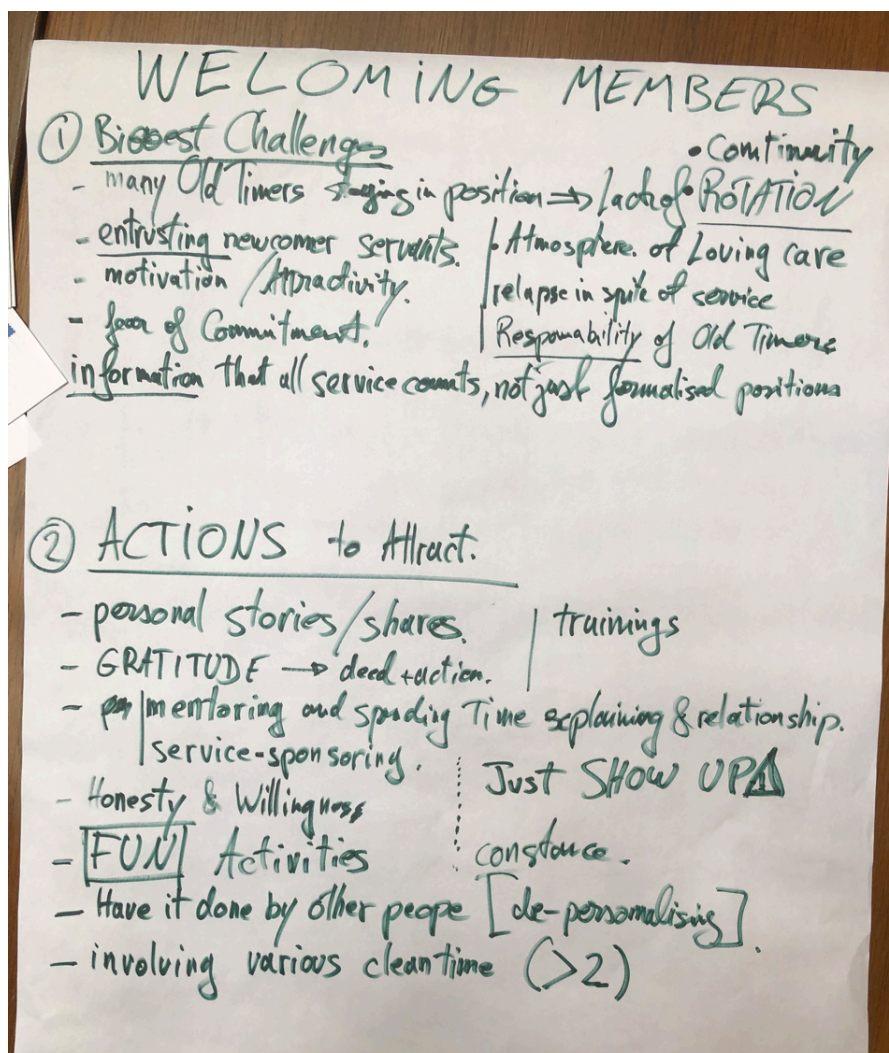 WELOMING MEMBERS
① Biggest Challenges
• Continuity
- many Old Timers staying in position ⇒ lack of • ROTATION
- entrusting newcomer servants. | • Atmosphere. of Loving care
- motivation / Attractivity. | relapse in spite of service
- fear of Commitment. | Responsability of Old Timers
information that all service counts, not just formalised positions
② ACTIONS to Attract.
- personal stories/shares. | trainings
- GRATITUDE → deed + action.
- mentoring and spending Time explaining & relationship.
service-sponsoring.
Just SHOW UP
- Honesty & Willingness
- FUN Activities
constance.
- Have it done by other peope [de-personalising].
- involving various cleantime (>2)